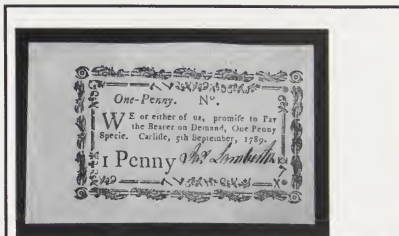 One-Penny. No.
WE or either of us, promise to Pay
the Bearer on Demand, One Penny
Specie. Carlisle, 5th September, 1789.
1 Penny